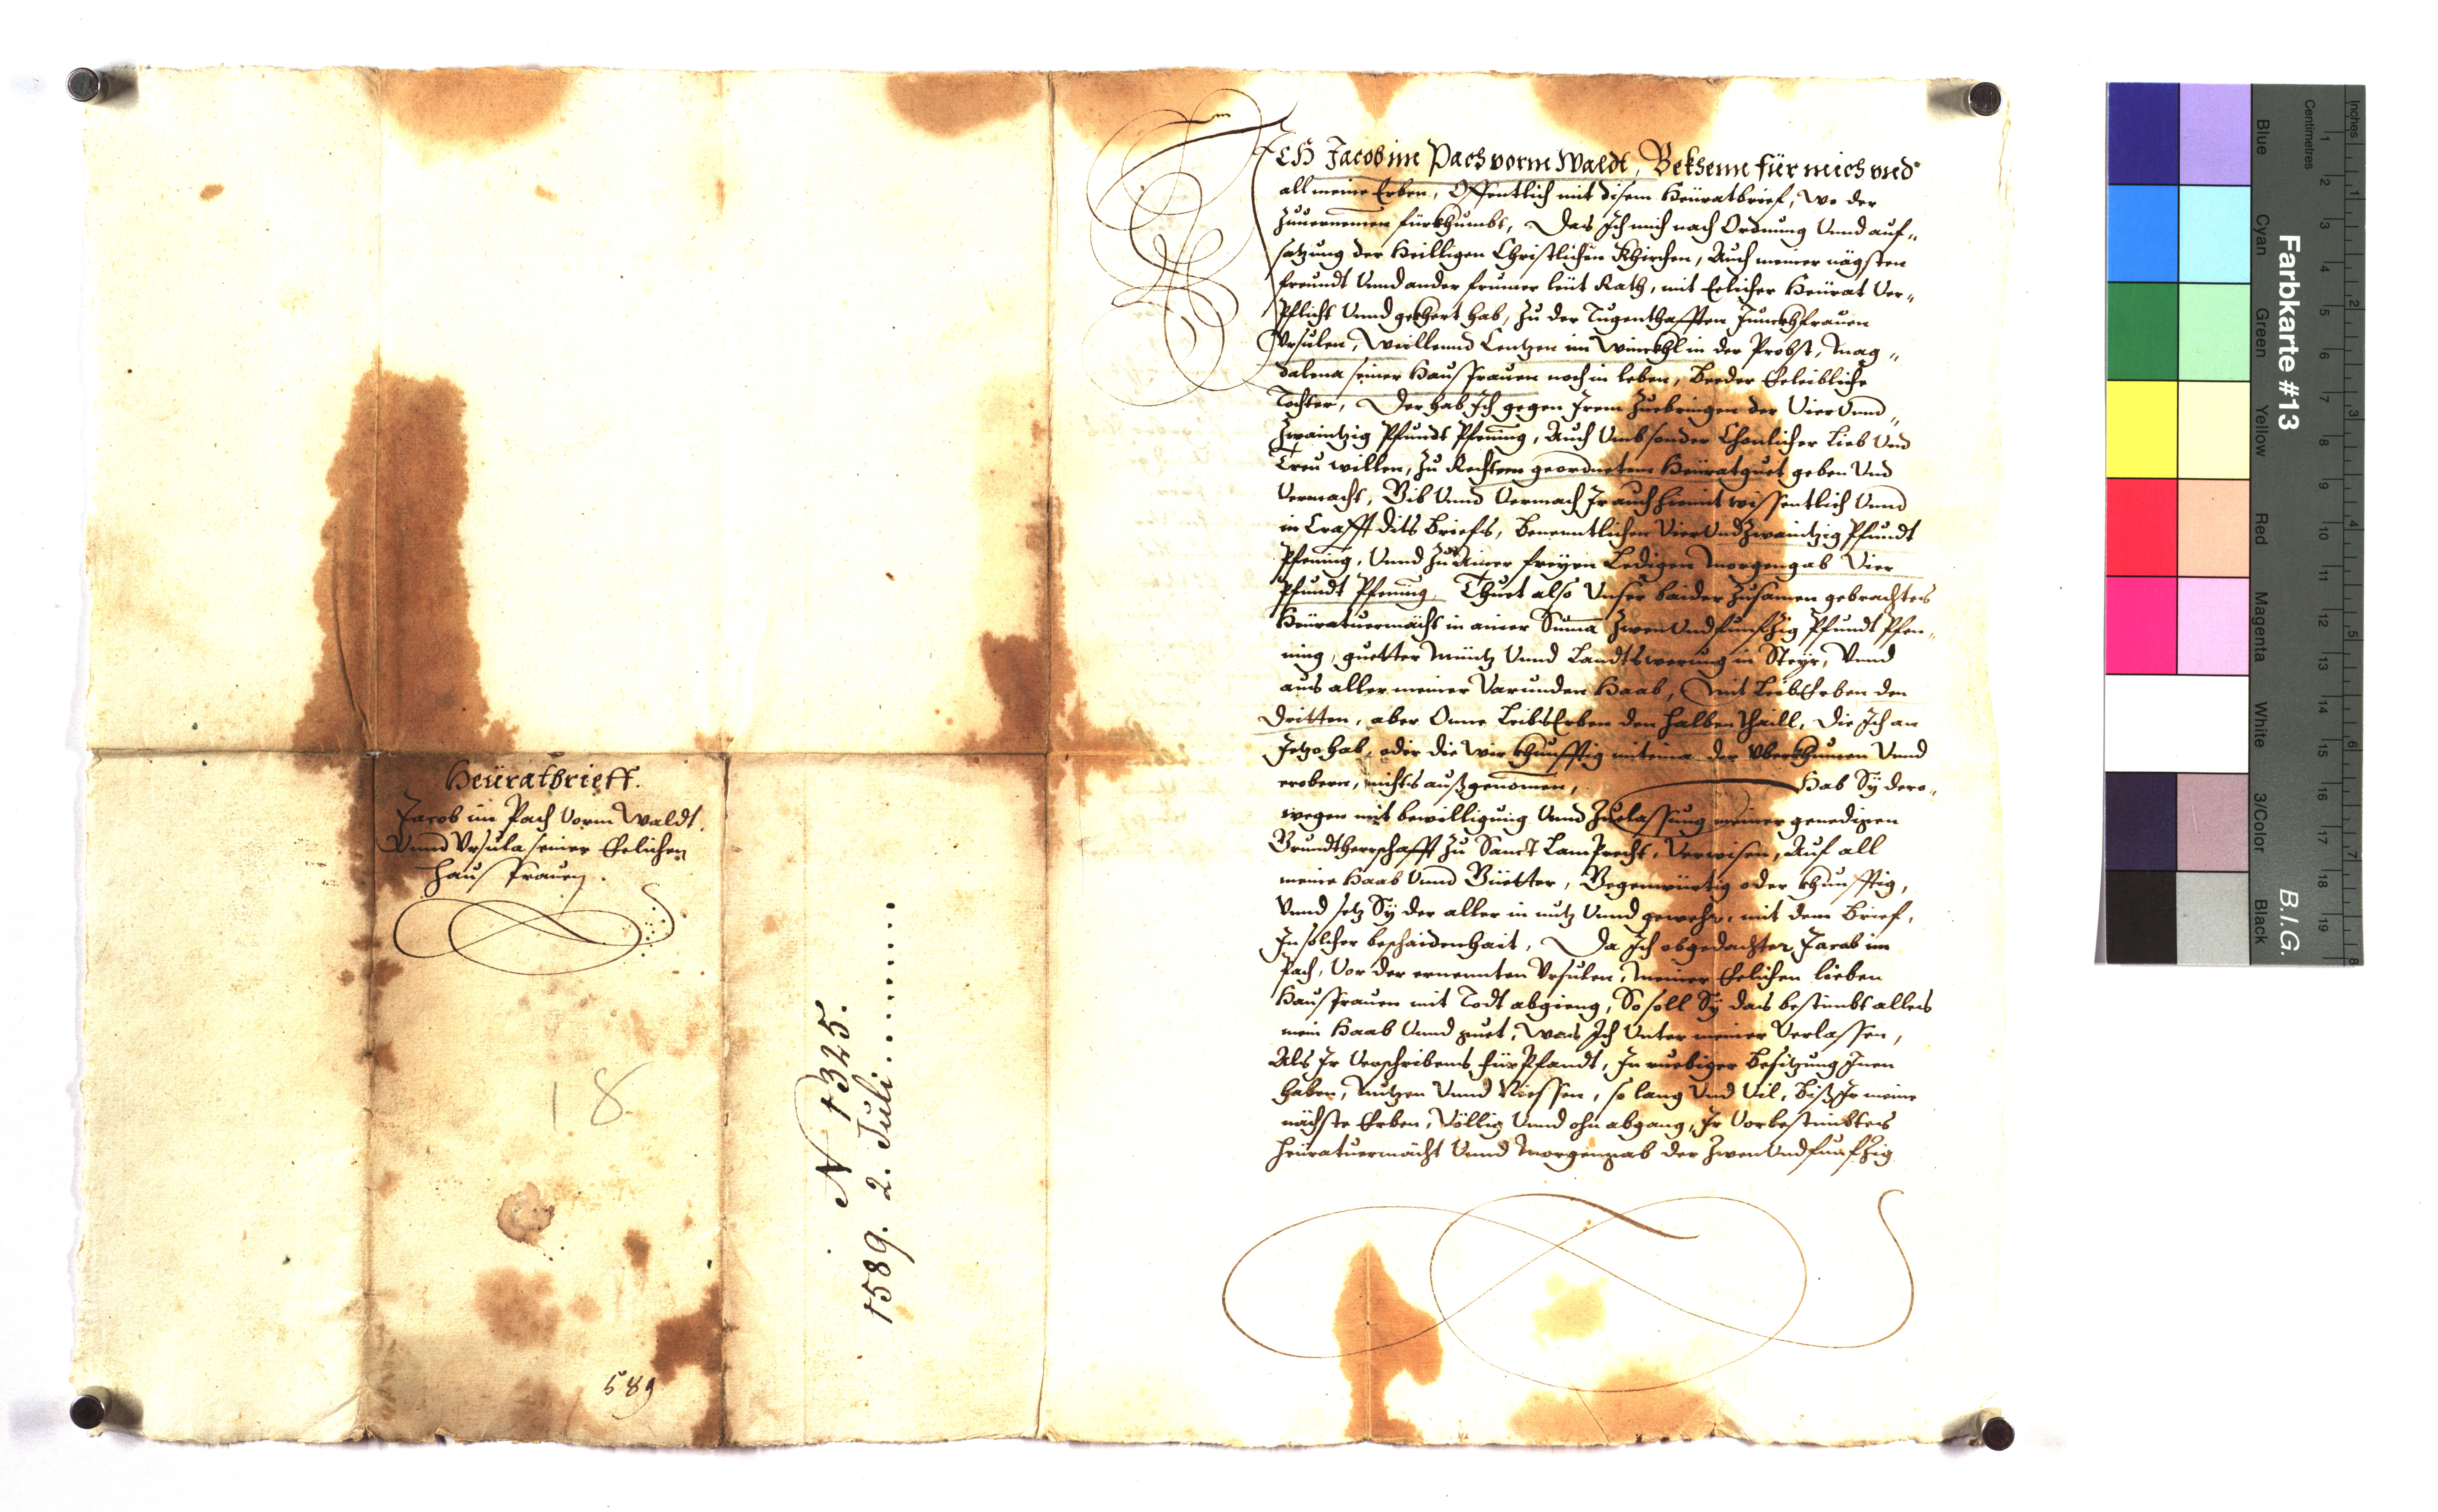 Heüratbrieff.
Jacob im Pach Vorm Waldt.
Vnnd Vrsula seiner Ehelichen
Hausfrauen.
18
589
N 1325.
1589. 2. Juli.........
Ich Jacob im Pach vorm Waldt, Bekhenn für mich vnd
all meine Erben, Offentlich mit disem Heüratbrief, wo der
Zuuernemen fürkhumbt, Das Ich mich nach Ordnung Vnnd auf„
satzung der Heilligen Christlichen Khirchen, Auch meiner nägsten
freundt Vnnd ander frumer leüt Rath, mit Eelicher Heürat Ver„
Pflicht Vnnd gekhert hab, Zu der Tugenthafften Junckhfrauen
Vrsulen, Weillennd Lentzen im Winckhl in der Probst, Mag„
dalena seiner Hausfrauen noch in leben, Beeder Eheleibliche
Tochter, Der hab Ich gegen Irem Zuebringen der Vier Vnnd„
Zwaintzig Pfundt Pfening, Auch Vmb sonder Chonlicher Lieb Vnd
Treu willen, Zu Rechtem geordnetem Heüratguet geben Vnd
Vermacht, Gib Vnnd Vermach Ir auch hiemit wissentlich Vnnd
in Crafft dits Briefs, Benenntlichen Vier Vnd Zwaintzig Pfundt
Pfening, Vnnd Zu Ainer freyen Ledigen Morgengab Vier
Pfundt Pfening, Thuet also Vnser baider Zusamen gebrachtes
Heüratuermächt in ainer Summa Zwen Vnd funfzig Pfundt Pfen„
ning, guetter Müntz Vnnd Landtswerung in Steyr, Vnnd
aus aller meiner Varunden Haab, Mit LeibsErben den
Dritten, aber Onne LeibsErben den halben thaill, Die Ich an
Jetzo hab, oder die Wir khunfftig miteina der Vberkhumen Vnnd
erobern, nichts außgenomen, Hab Sy dero„
wegen mit bewilligung Vnnd Zuelassung meiner genedigen
Grundtherrschafft Zu Sanct Lamprecht, Verwisen, Auf all
meine Haab Vnnd Güetter, Gegenwürtig oder khunfftig,
Vnnd setz Sy der aller in nutz Vnnd gewehr, mit dem Brief,
In solcher beschaidenhait, Da Ich obgedachter Jacob im
Pach, Vor der ernennten Vrsulen, meiner Ehelichen lieben
Hausfrauen mit Todt abgieng, So soll Sy das bestimbt alles
mein Haab Vnnd guet, Was Ich Vnter meiner Verlassen,
Als Ir Verschribens FürPfandt, In ruebiger Besitzung Innen
haben, Nutzen Vnnd Niessen, so lang Vnd Vil, biß Ir meine
nächste Erben, Völlig Vnnd ohn abgang, Ir Vorbestimbtes
Heüratuermächt Vnnd Morgengab der Zwen Vnd funfzig